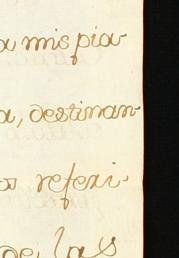 a mis pia-
a, destinan-
os refexi-
de las